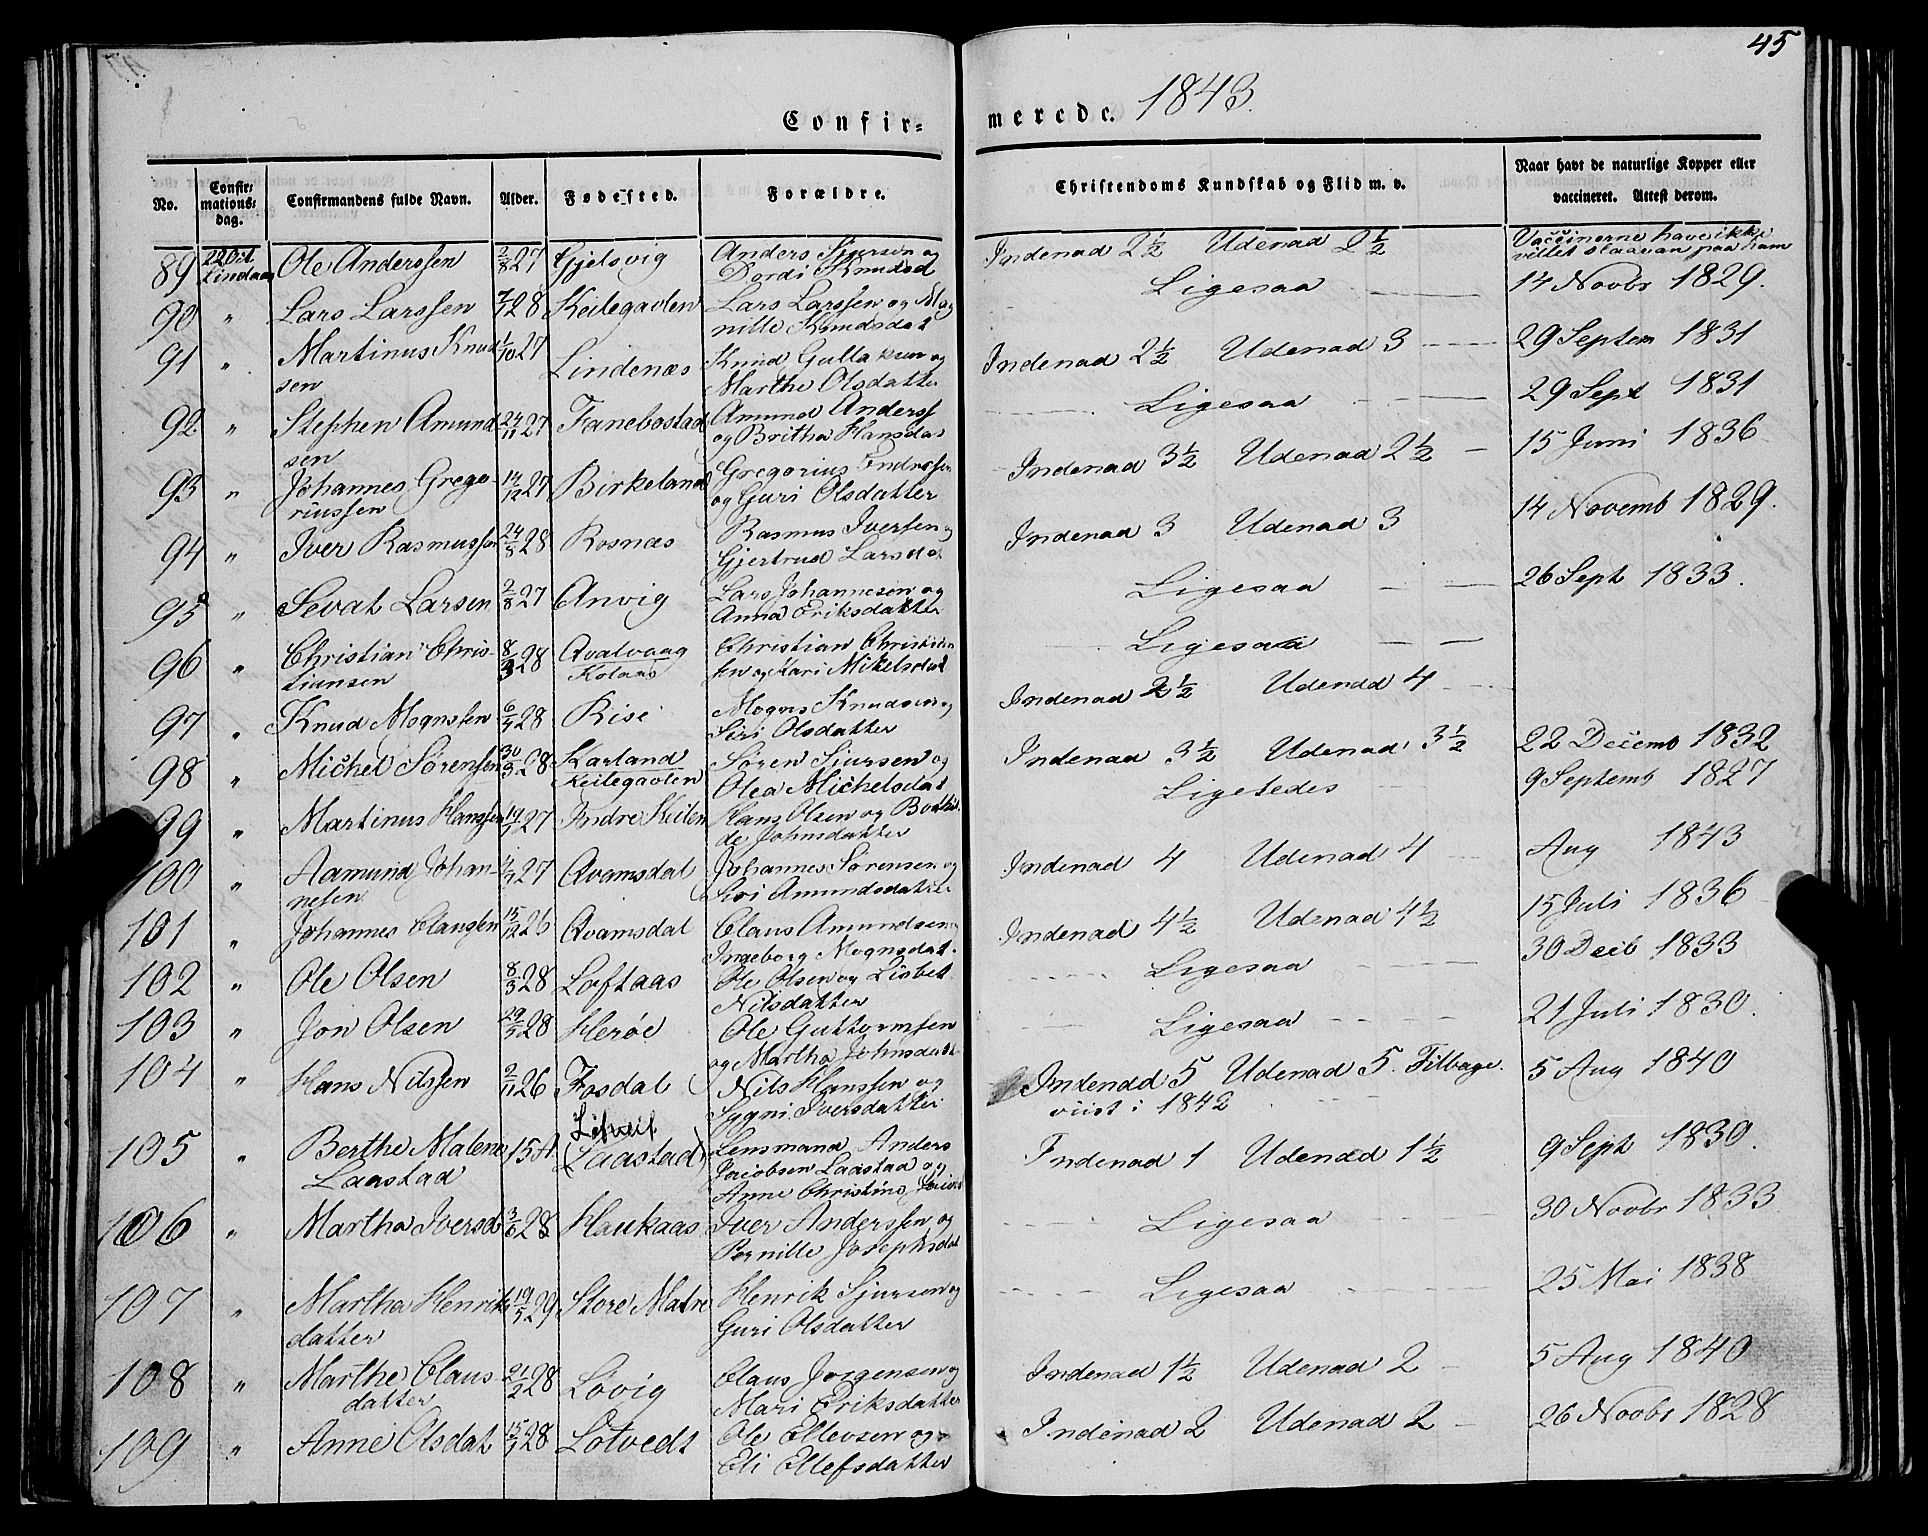 45
Confir=
merede. 1843.
No.
Confir=
mations=
dag.
Confirmandens fulde Navn.
Alder.
Fødested.
Forældre.
Christendoms Kundskab og Flid m. v.
Naar havt de naturlige Kopper eller
vaccineret. Attest derom.
89 Ole Anderssen 2/8 27 Gjelsvig Anders Sjursen og Indenad 2 1/2 Udenad 2 1/2 Vaccinerne have ikke
Dordi Knudsd villet slaae an paa ham
90 " Lars Larssen 7/1 28 Keilegavlen Lars Larssen og Mag Ligesaa 14 Novbr 1829.
nille Knudsdat
91 " Martinus Knud 1/10 27 Lindenæs Knud Gullaksen og Indenad 2 1/2 Udenad 3 29 Septem 1831
sen Marthe Olsdatter
92 " Stephen Amund 24/11 27 Fanebostad Amund Anderss Ligesaa 29 Sept 1831
sen og Britha Hansdat
93 " Johannes Grego- 14/12 27 Birkeland Gregorius Endresen Indenad 3 1/2 Udenad 2 1/2 15 Juni 1836
riussen og Guri Olsdatter
94 " Iver Rasmussen 24/8 28 Rosnæs Rasmus Iversen og Indenad 3 Udenad 3 14 Novemb 1829.
Gjertrud Larsdat
95 " Sevat Larsen 2/8 27 Anvig Lars Johannesen og Ligesaa 26 Sept 1833.
Anna Eriksdatter
96 " Christian Chris- 8/3 28 Qvalvaag Christian Christian Ligesaa
tiansen Kolaas sen og Kari Mikelsdat
97 " Knud Mognssen 6/4 28 Risè Mogns Knudsen og Indenad 2 1/2 Udenad 4
Siri Olsdatter
98 " Michel Sørensen 30/3 28 Karland Søren Siursen og Indenad 3 1/2 Udenad 3 1/2 22 Decemb 1832
Keilegavlen Olea Michelsdat
99 " Martinus Hanssen 19/7 27 Indre Keilen Hans Olsen og Bothil Ligeledes 9 Septemb 1827
de Johnsdatter
100 " Aamund Johan- 27 Qvamsdal Johannes Sørensen og Indenad 4 Udenad 4 Aug 1843
nesen Siri Amundsdatter
101 " Johannes Claussen 15/12 26 Qvamsdal Claus Amundsen og Indenad 4 1/2 Udenad 4 1/2 15 Juli 1836
Ingeborg Mognsdat.
102 " Ole Olsen 8/3 28 Loftaas Ole Olsen og Lisbet Ligesaa 30 Decb 1833
Nilsdatter
103 " Jon Olsen 28 Herøe Ole Guttormsen Ligesaa 21 Juli 1830.
og Martha Johnsdatt
104 " Hans Nilssen 2/11 26 Fosdal Nils Hanssen og Indenad 5 Udenad 5. Tilbage. 5 Aug 1840
Sygni Iversdatter viist i 1842
105 " Berthe Malene 15 A. (Laastad) Lensmand Anders Indenad 1 Udenad 1 1/2 9 Sept 1830.
Laastad Jacobsen Laastad og
Anne Christine
106 " Martha Iversd 28 Haukaas Iver Anderssen og Ligesaa 30 Novbr 1833
Pernille Josephsdat
107 " Martha Henriks 19/5 29 Store Matre Henrik Sjursen og Ligesaa 25 Mai 1838
datter Guri Olsdatter
108 " Marthe Claus 21/2 28 Løvig Claus Jørgensen og Indenad 1 1/2 Udenad 2 5 Aug 1840
datter Mari Eriksdatter
109 " Anne Olsdat 28 Løtvedt Ole Ellevsen og Indenad 2 Udenad 2 26 Novbr 1828
Eli Ellefsdatter